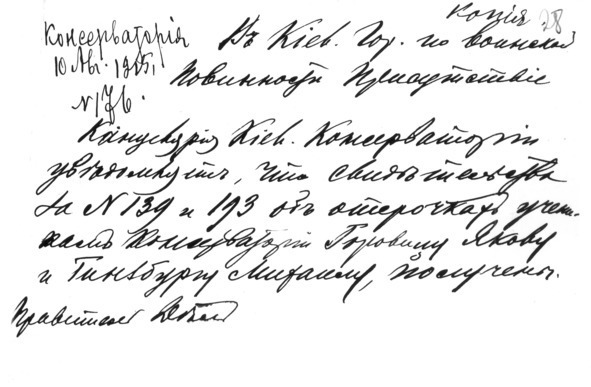 Копія 28
Консерваторія
10 Авг. 1915,
№ 176.
Въ Кіев. Гор. по воинской
повинности Присутствіе
Канцелярія Кіев. Консерваторіи
увѣдомляетъ, что свидѣтельства
за № 139 и 193 объ отсрочкахъ учени-
камъ Консерваторіи Горовицу Якову
и Гинзбургу Михаилу, получены.
Правитель Дѣлъ